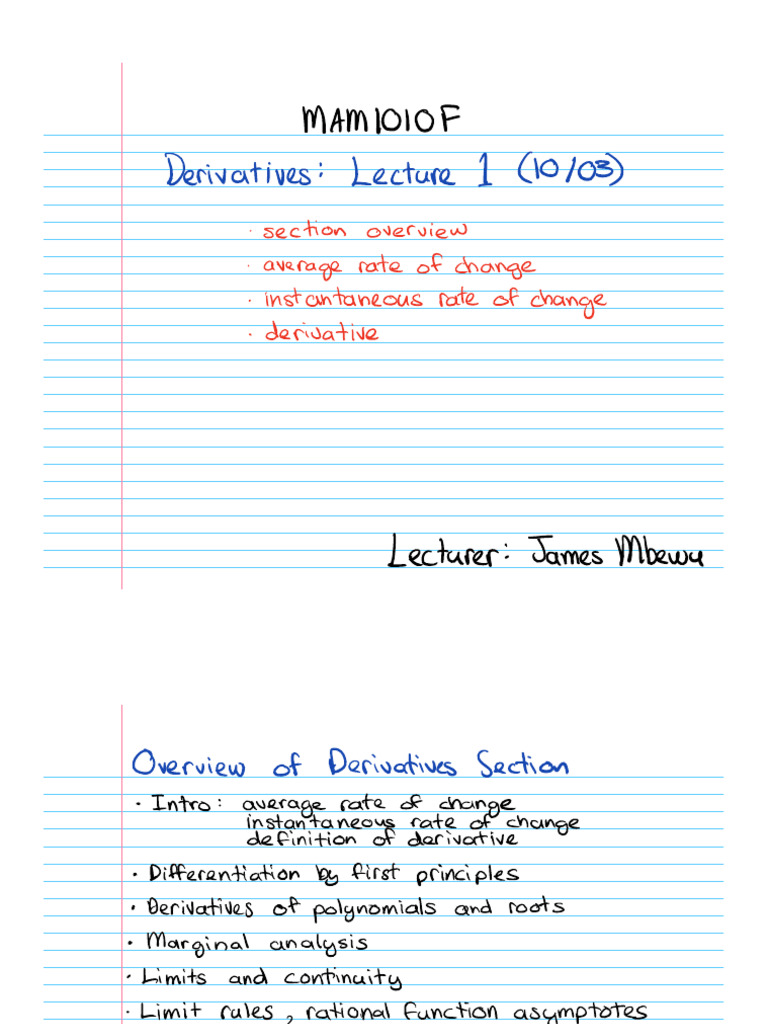 MAM1010F
Derivatives: Lecture 1 (10/03)
· section overview
· average rate of change
· instantaneous rate of change
· derivative
Lecturer: James Mbewu
Overview of Derivatives Section
· Intro: average rate of change
instantaneous rate of change
definition of derivative
· Differentiation by first principles
· Derivatives of polynomials and roots
· Marginal analysis
· Limits and continuity
· Limit rules, rational function asymptotes